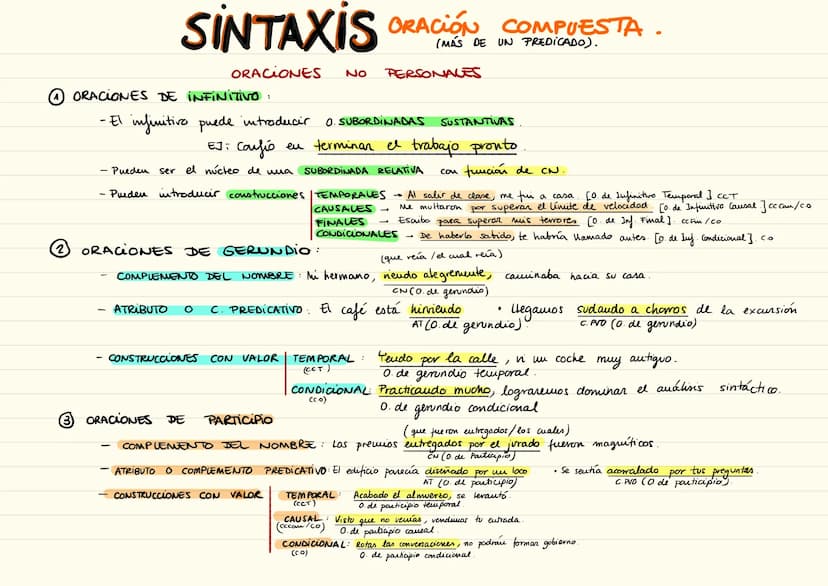 SINTAXIS ORACIÓN COMPUESTA.
(MÁS DE UN PREDICADO).
ORACIONES NO PERSONALES
① ORACIONES DE INFINITIVO:
- El infinitivo puede introducir O. SUBORDINADAS SUSTANTIVAS.
EJ: Confío en terminar el trabajo pronto.
- Pueden ser el núcleo de una SUBORDINADA RELATIVA con función de CN.
- Pueden introducir construcciones | TEMPORALES → Al salir de clase, me fui a casa. [O de Infinitivo Temporal] CCT
CAUSALES → Me multaron por superar el límite de velocidad. [O de Infinitivo Causal] CCCau/CO
FINALES → Escribo para superar mis temores [O. de Inf. Final]. CCFin/CO
CONDICIONALES → De haberlo sabido, te habría llamado antes [O de Inf. Condicional]. CO
② ORACIONES DE GERUNDIO:
(que reía/el cual reía)
- COMPLEMENTO DEL NOMBRE: Mi hermano, riendo alegremente, caminaba hacia su casa.
CN (O. de gerundio)
- ATRIBUTO O C. PREDICATIVO: El café está hirviendo • Llegamos sudando a chorros de la excursión
AT (O. de gerundio). C. PVO (O. de gerundio)
- CONSTRUCCIONES CON VALOR | TEMPORAL: Yendo por la calle, vi un coche muy antiguo.
(CCT) O. de gerundio temporal.
CONDICIONAL: Practicando mucho, lograremos dominar el análisis sintáctico.
(CO) O. de gerundio condicional
③ ORACIONES DE PARTICIPIO
(que fueron entregados/los cuales)
- COMPLEMENTO DEL NOMBRE: Los premios entregados por el jurado fueron magníficos.
CN (O de Participio)
- ATRIBUTO O COMPLEMENTO PREDICATIVO: El edificio parecía diseñado por un loco • Se sentía acorralado por tus preguntas.
AT (O. de participio) C. PVO (O de participio)
- CONSTRUCCIONES CON VALOR | TEMPORAL: Acabado el almuerzo, se levantó
(CCT) O. de participio temporal.
CAUSAL: Visto que no venías, vendimos tu entrada.
(CCCau/CO) O. de participio causal.
CONDICIONAL: Rotas las conversaciones, no podrán formar gobierno.
(CO) O. de participio condicional